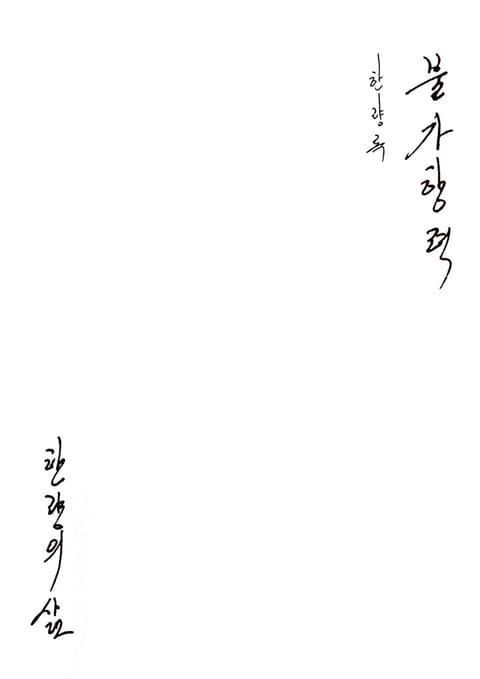 불가항력
한량록
한량의 삶